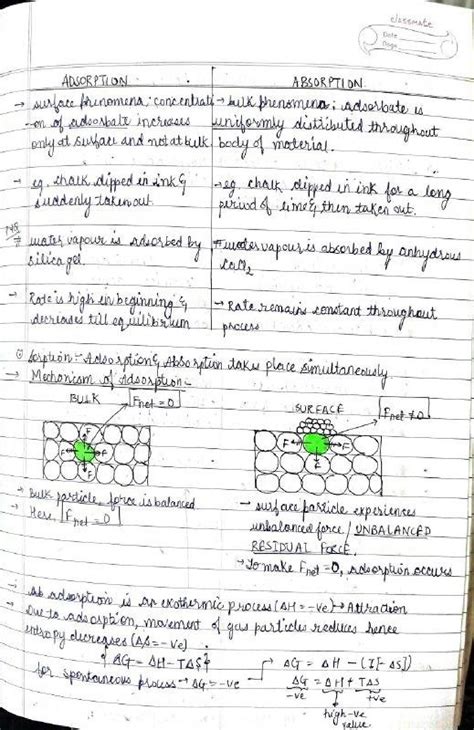 classmate
Date
Page
ADSORPTION
ABSORPTION
→ surface phenomena: concentrati
-on of adsorbate increases
only at surface and not at bulk
→ bulk phenomena: adsorbate is
uniformly distributed throughout
body of material.
→ eg. chalk dipped in ink &
suddenly taken out
→ eg. chalk dipped in ink for a long
period of time & then taken out.
→ water vapour is adsorbed by
silica gel.
→ water vapour is absorbed by anhydrous
CaCl2
→ Rate is high in beginning &
decreases till equilibrium
→ Rate remains constant throughout
process
Sorption - Adsorption & Absorption takes place simultaneously
→ Mechanism of Adsorption -
BULK
Fnet = 0
SURFACE
Fnet ≠ 0
F
F
F
F
F
F
F
→ Bulk particle, force is balanced
→ Here, Fnet = 0
→ surface particle experiences
unbalanced force / UNBALANCED
RESIDUAL FORCE.
→ To make Fnet = 0, adsorption occurs
adsorption is an exothermic process (ΔH = -ve) → Attraction
Due to adsorption, movement of gas particles reduces hence
entropy decreases (ΔS = -ve)
ΔG = ΔH - TΔS
for spontaneous process → ΔG = -ve
ΔG = ΔH - (T[-ΔS])
ΔG = ΔH + TΔS
-ve
+ve
high -ve
value.